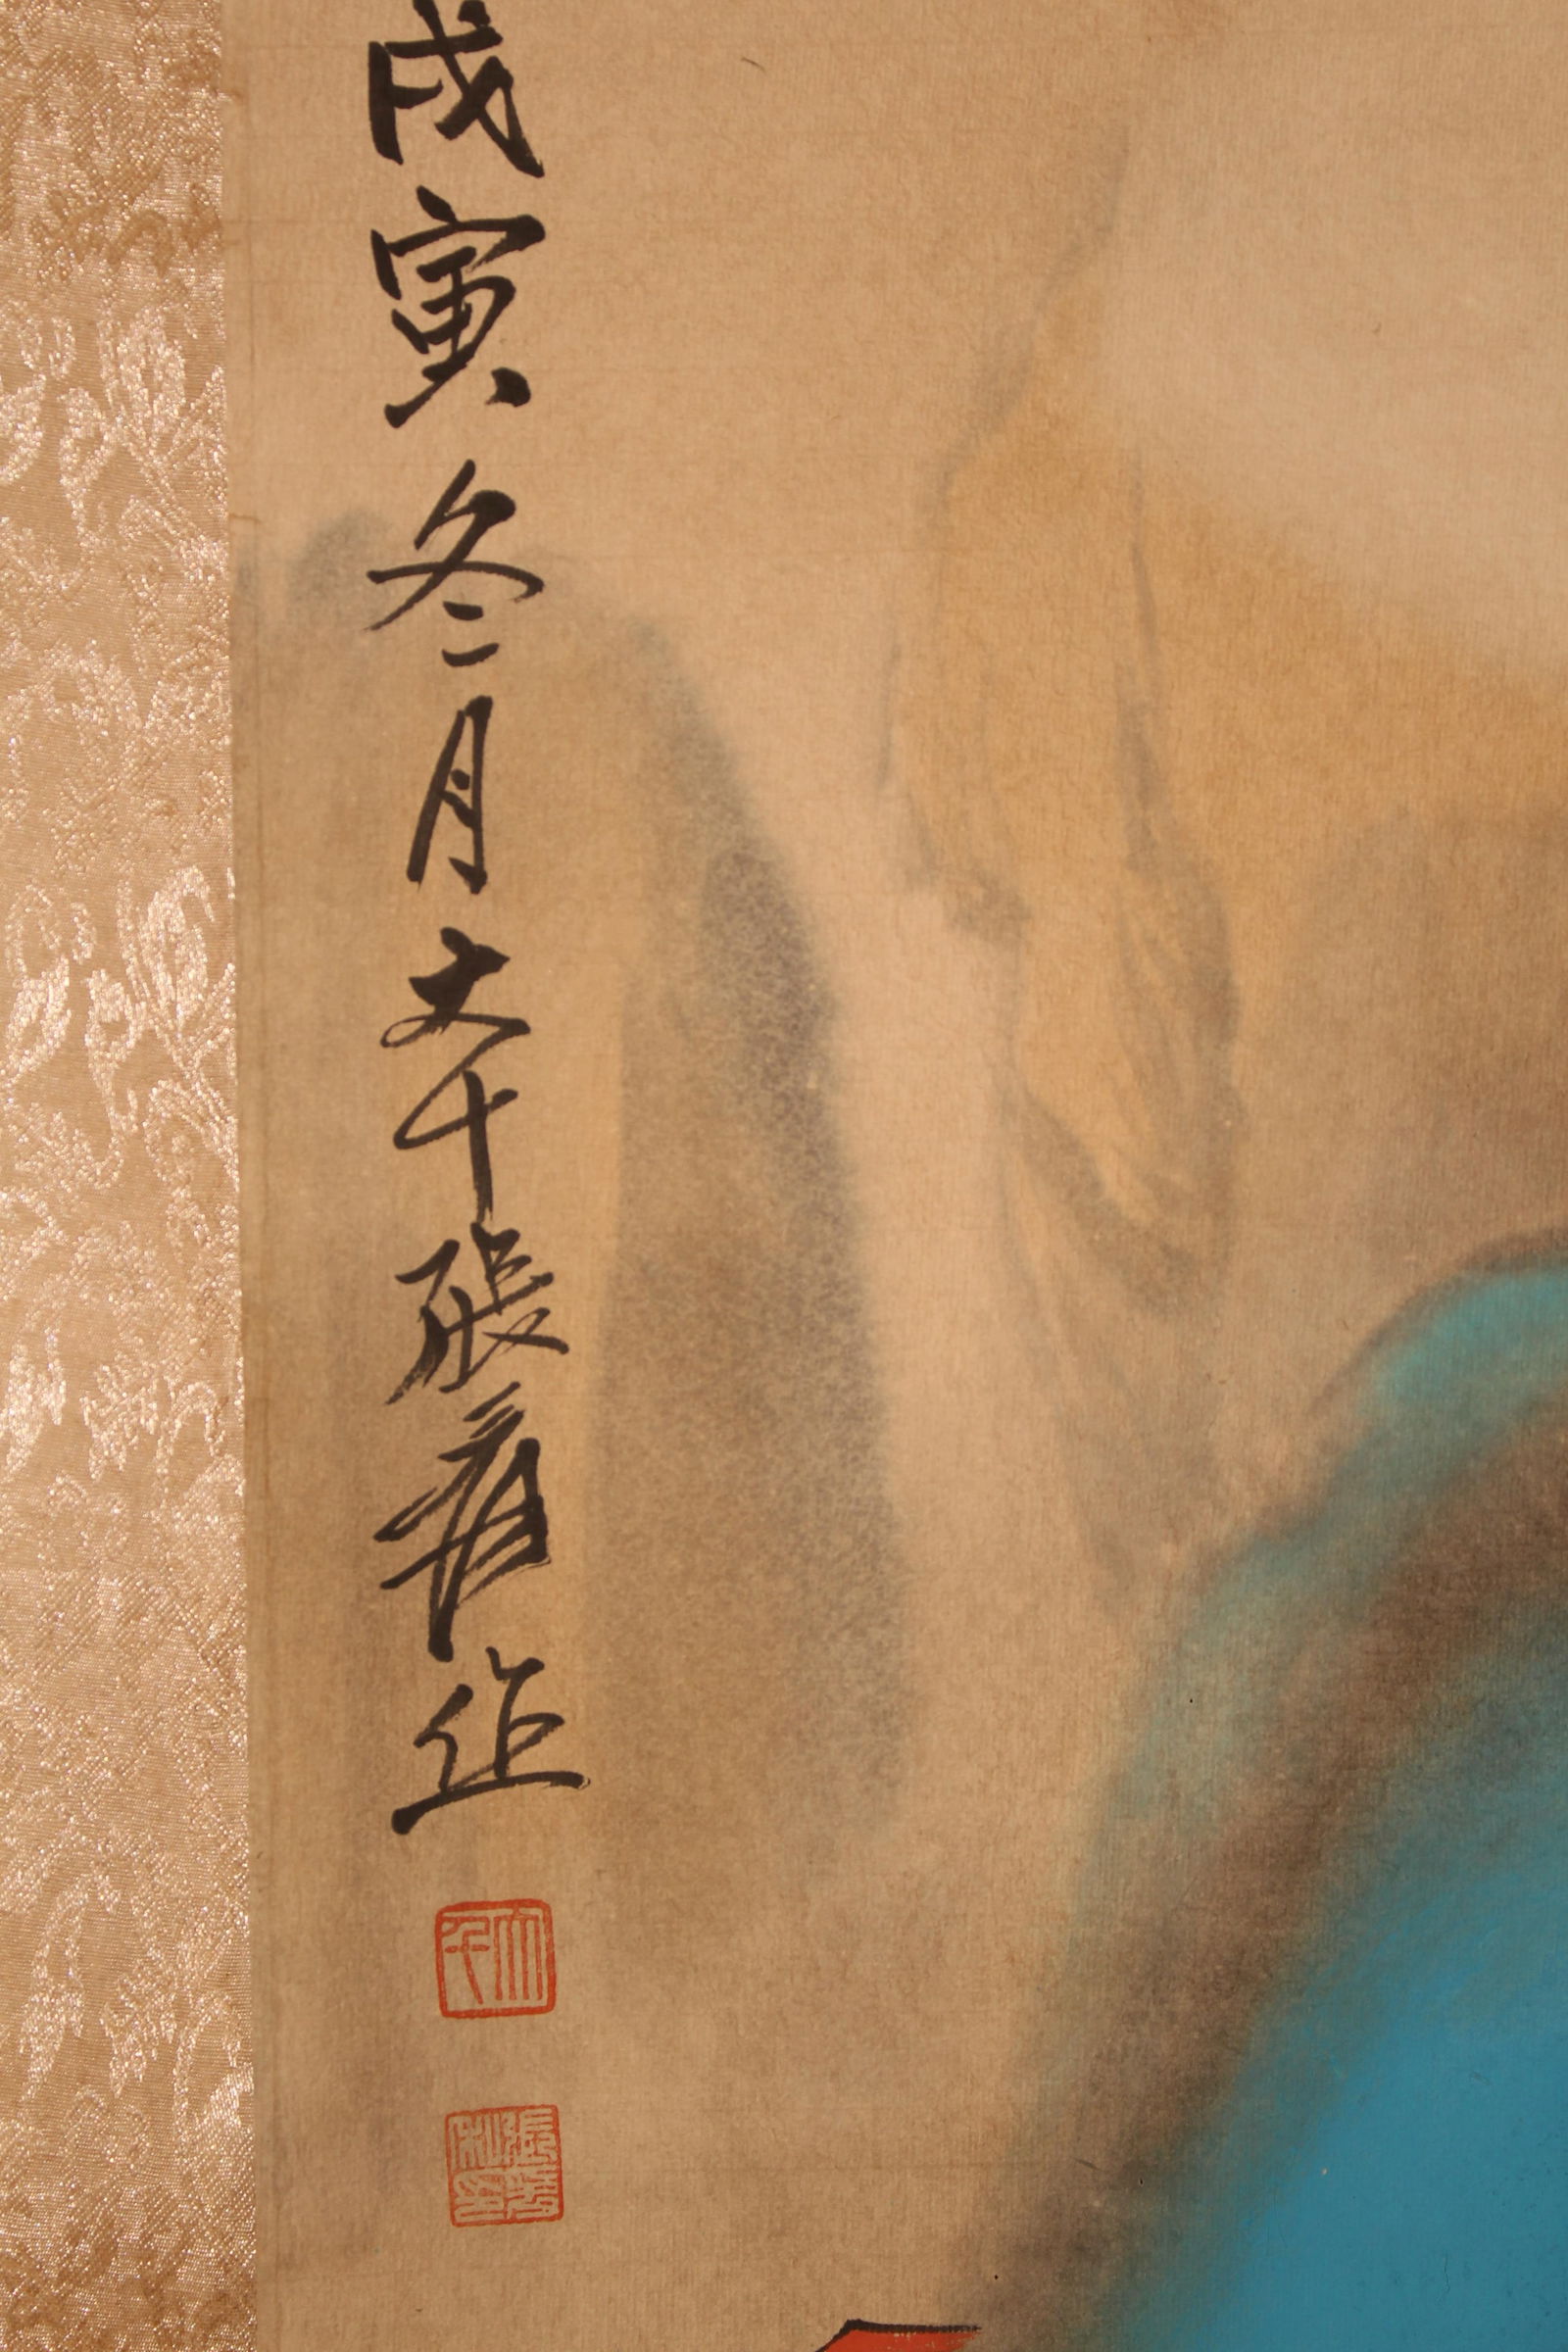 戊寅冬月大千張爰作
大千
張爰私印